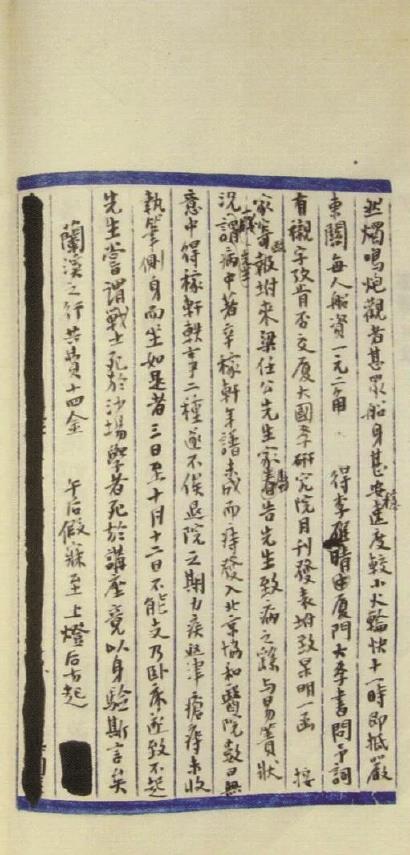 然燭鳴炮觀者甚眾船身甚安穩速度較小火輪快十一時即抵嚴
東關每人船資一元二角 得李雁晴由厦門大學書問予詞
有襯字攷肯否交厦大國學研究院月刊發表坿致杲明一函 接
家寄報坿來梁任公先生家屬告先生致病之繇与易簀狀
況謂病中著辛稼軒年譜未成而痔發入北京協和醫院數日無
意中得稼軒軼事二種遂不俟退院之期力疾返津瘡痔未收
執筆側身而坐如是者三日至十月十二日不能支乃卧床遂致不起
先生嘗謂戰士死於沙場學者死於講座竟以身驗斯言矣
蘭溪之行共費十四金 午后假寐至上燈后方起